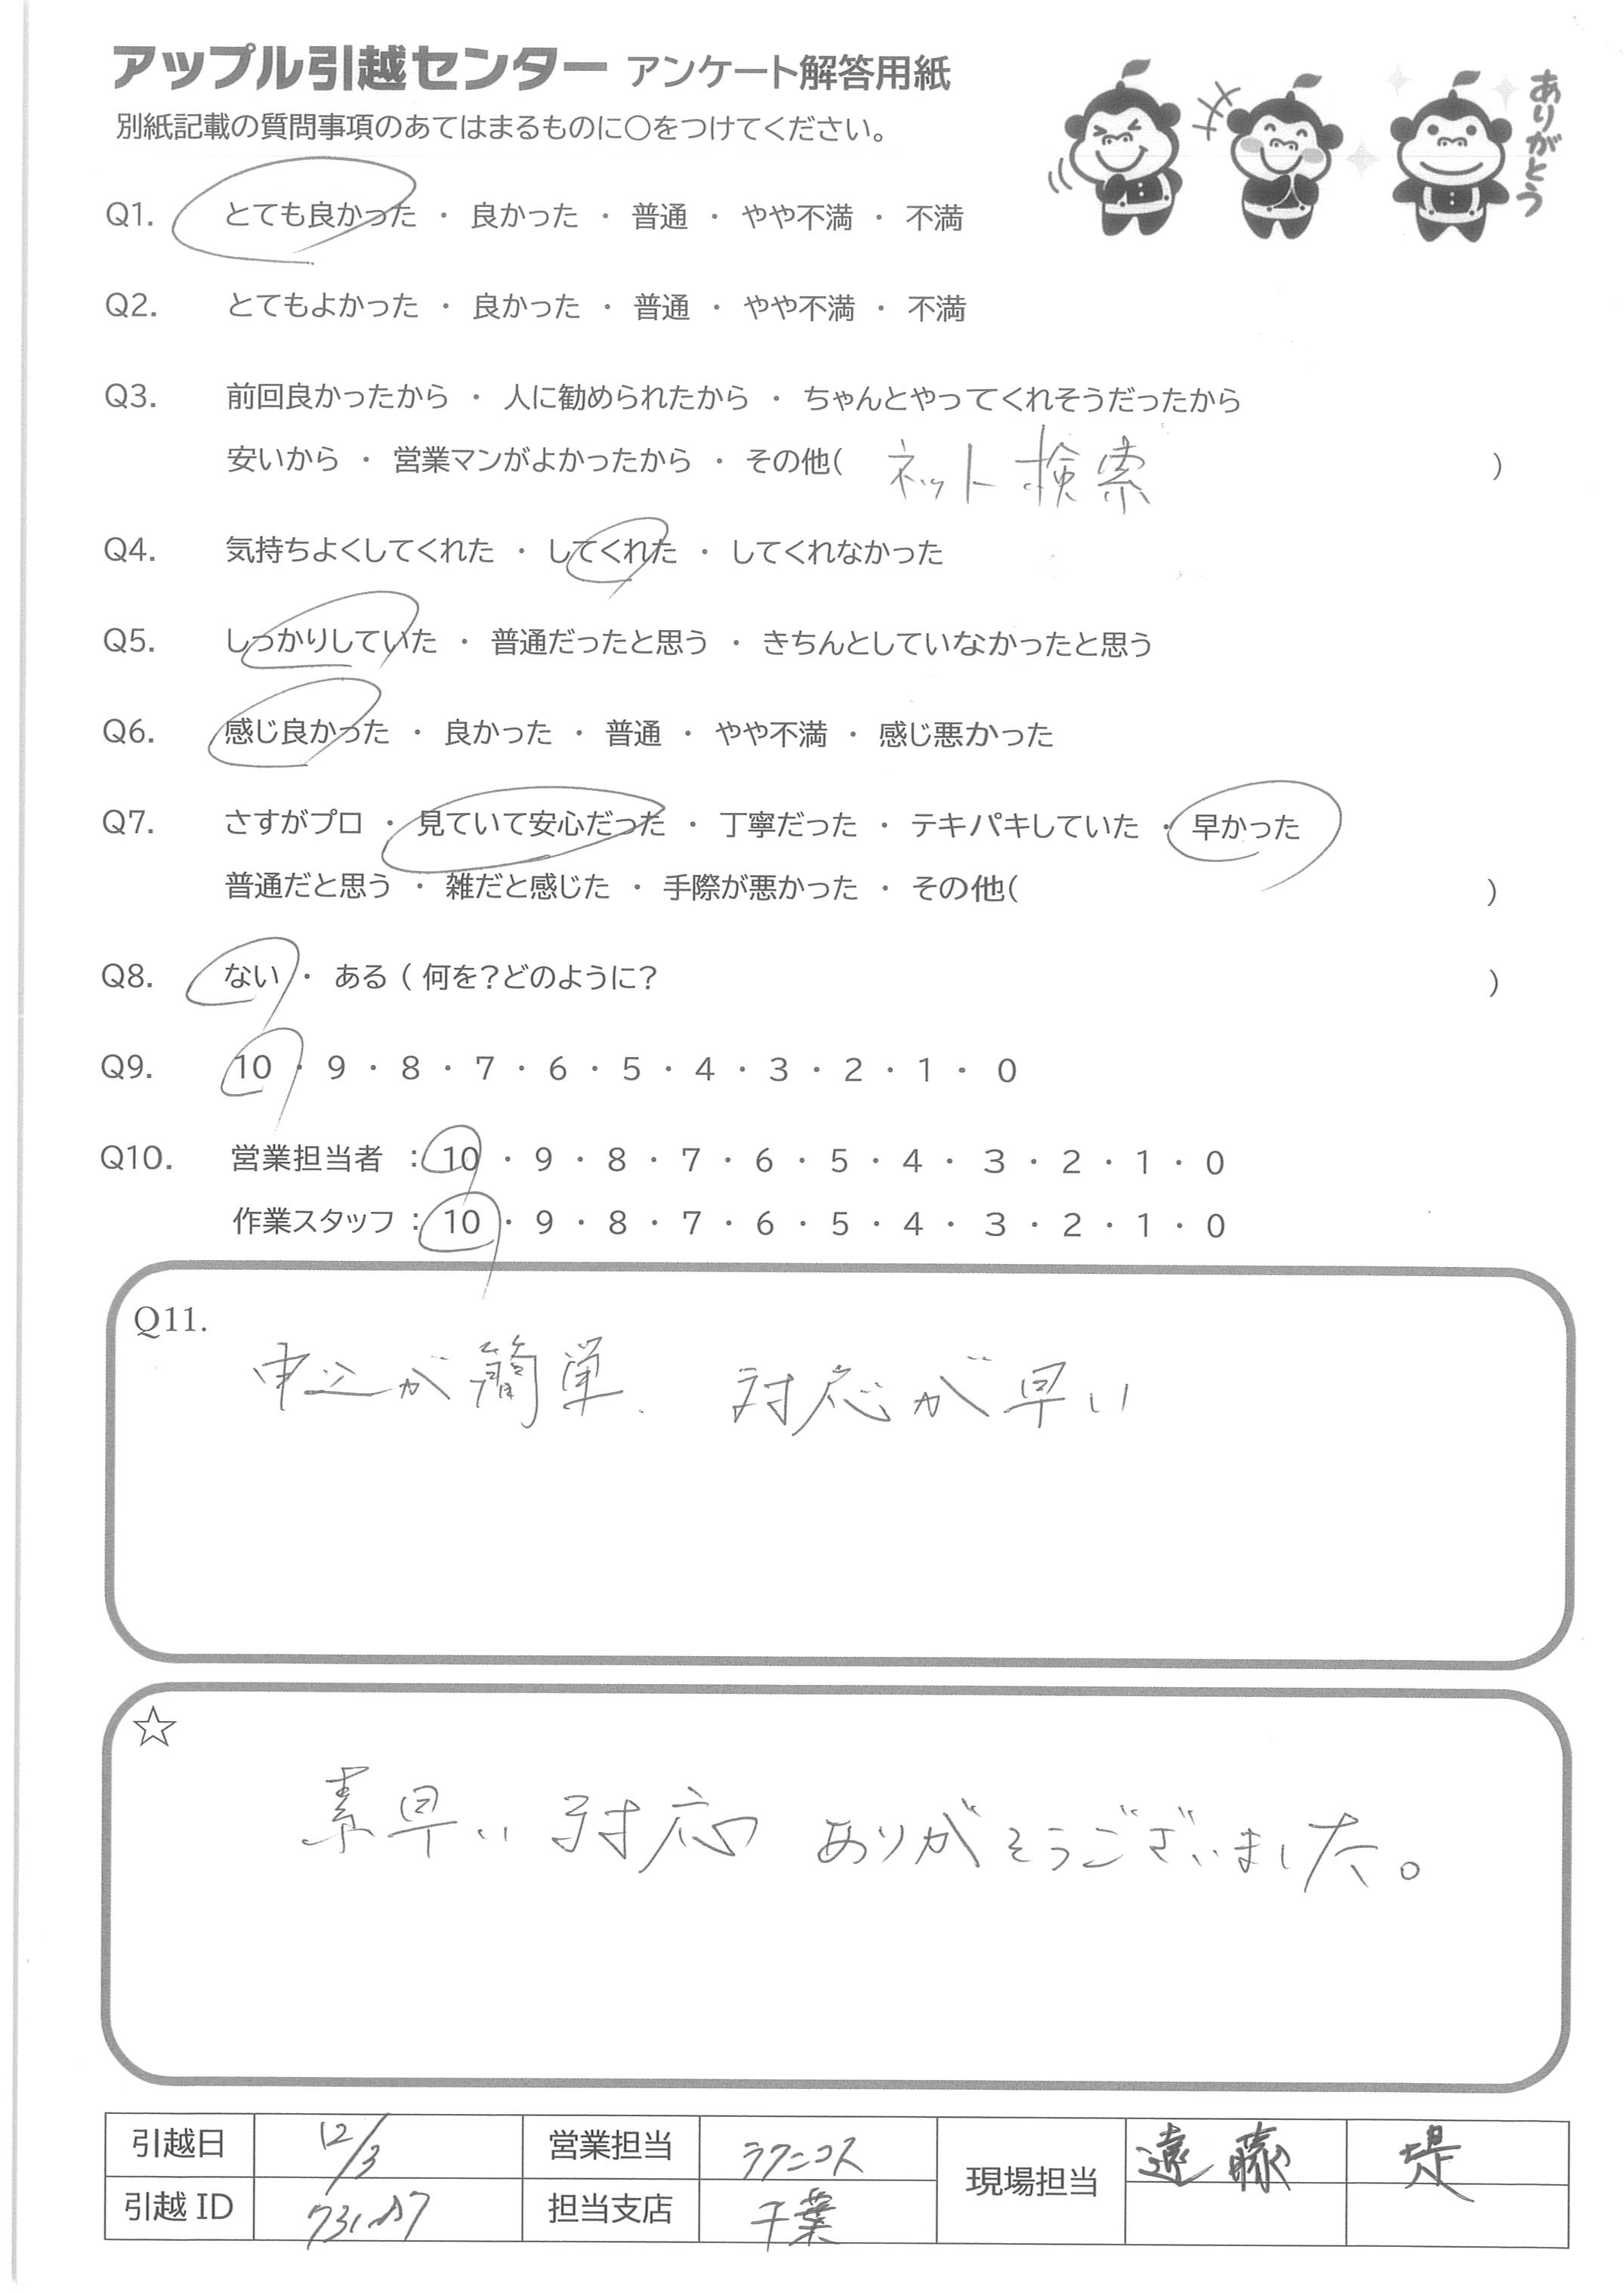 アップル引越センター アンケート解答用紙
別紙記載の質問事項のあてはまるものに〇をつけてください。
ありがとう
Q1. とても良かった ・ 良かった ・ 普通 ・ やや不満 ・ 不満
Q2. とてもよかった ・ 良かった ・ 普通 ・ やや不満 ・ 不満
Q3. 前回良かったから ・ 人に勧められたから ・ ちゃんとやってくれそうだったから
安いから ・ 営業マンがよかったから ・ その他( ネット検索 )
Q4. 気持ちよくしてくれた ・ してくれた ・ してくれなかった
Q5. しっかりしていた ・ 普通だったと思う ・ きちんとしていなかったと思う
Q6. 感じ良かった ・ 良かった ・ 普通 ・ やや不満 ・ 感じ悪かった
Q7. さすがプロ ・ 見ていて安心だった ・ 丁寧だった ・ テキパキしていた ・ 早かった
普通だと思う ・ 雑だと感じた ・ 手際が悪かった ・ その他( )
Q8. ない ・ ある ( 何を？どのように？ )
Q9. 10 ・ 9 ・ 8 ・ 7 ・ 6 ・ 5 ・ 4 ・ 3 ・ 2 ・ 1 ・ 0
Q10. 営業担当者 : 10 ・ 9 ・ 8 ・ 7 ・ 6 ・ 5 ・ 4 ・ 3 ・ 2 ・ 1 ・ 0
作業スタッフ : 10 ・ 9 ・ 8 ・ 7 ・ 6 ・ 5 ・ 4 ・ 3 ・ 2 ・ 1 ・ 0
Q11.
申込が簡単、対応が早い
☆
素早い対応 ありがとうございました。
引越日 12/3 営業担当 ラクニコス 現場担当 遠藤 堤
引越ID 担当支店 千葉